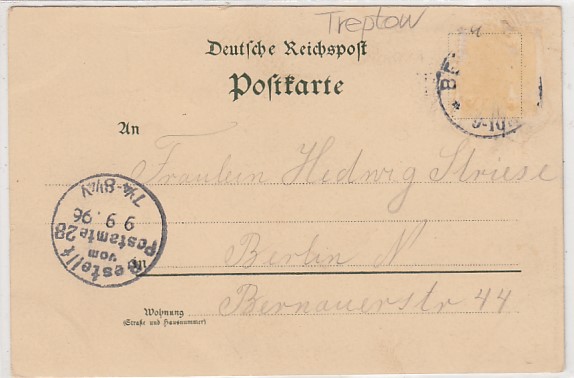 Treptow
Deutsche Reichspost
Postkarte
An
Fräulein Hedwig Striese
in
Berlin N
Bernauerstr 44
Wohnung
(Straße und Hausnummer)
Bestellt
vom
Postamte 28
9. 9. 96
7¼-8½V
BE
9-10